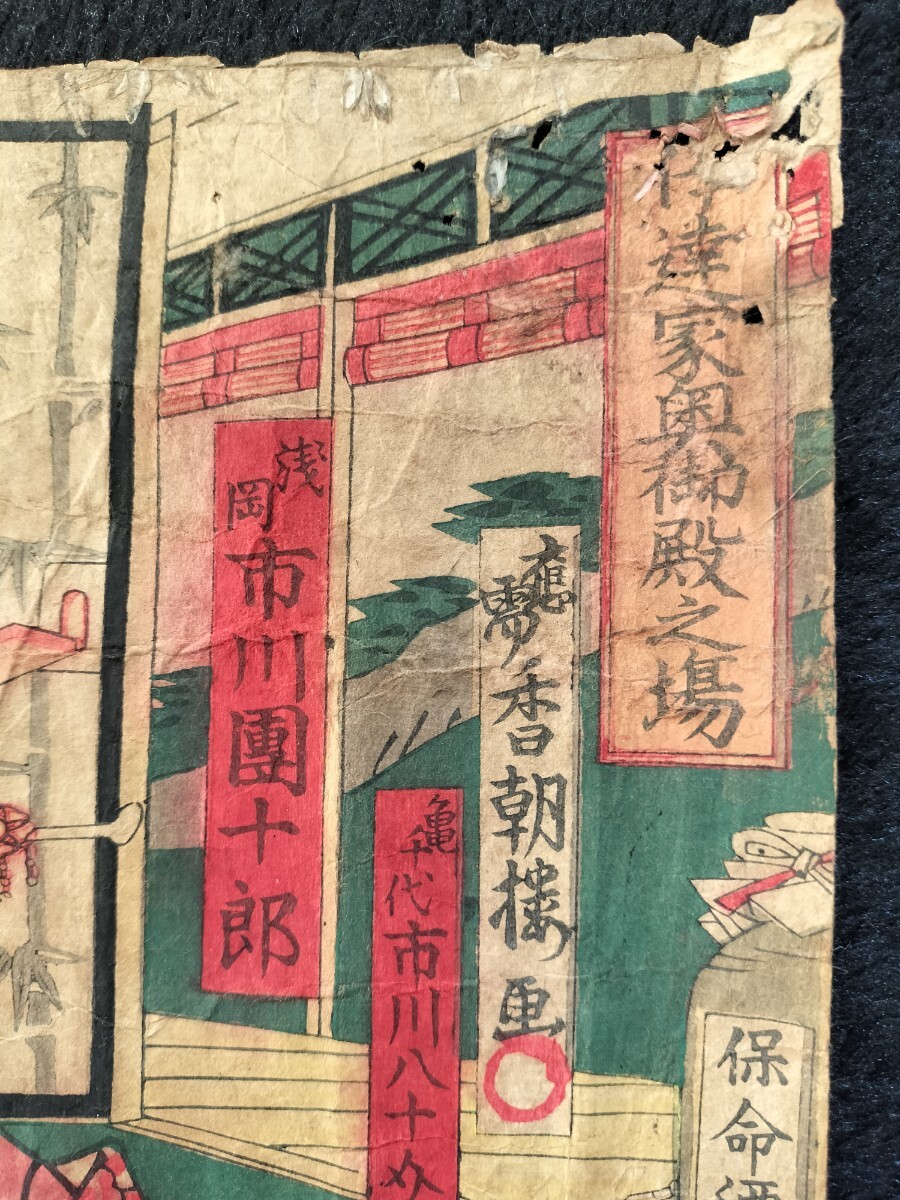 伊達家奥御殿之場
應需
香朝樓画
浅岡
市川團十郎
亀千代
市川八十
保命酒